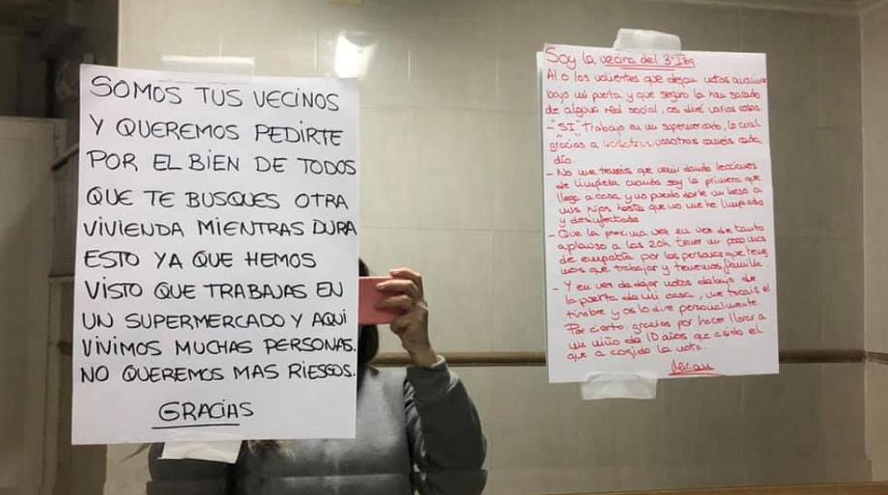 SOMOS TUS VECINOS
Y QUEREMOS PEDIRTE
POR EL BIEN DE TODOS
QUE TE BUSQUES OTRA
VIVIENDA MIENTRAS DURA
ESTO YA QUE HEMOS
VISTO QUE TRABAJAS EN
UN SUPERMERCADO Y AQUI
VIVIMOS MUCHAS PERSONAS.
NO QUEREMOS MAS RIESGOS.
GRACIAS
Soy la vecina del 3º Izq
Al o los valientes que dejan notas
bajo mi puerta y que seguro la han sacado
de alguna red social, os diré varias cosas.
- "SI" Trabajo en un supermercado, lo cual
gracias a nosotros vosotros coméis cada
día.
- No me tenéis que venir dando lecciones
de limpieza cuando soy la primera que
llega a casa y no puedo darle un beso a
mis hijos hasta que no me he limpiado
y desinfectado
- Que la proxima vez en vez de tanto
aplauso a las 20h tener un poco mas
de empatía por las personas que tene
mos que trabajar y tenemos familia.
- Y en vez de dejar notas debajo de
la puerta de mi casa, me tocais el
timbre y os lo dire personalmente.
Por cierto, gracias por hacer llorar a
un niño de 10 años que a sido el
que a cogido la nota.